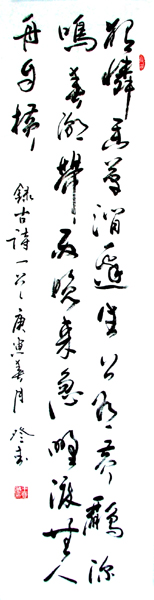 独憐幽草澗邊生上有黄鸝深
鳴春潮帶雨晚来急野渡無人
舟自横
録古詩一首庚寅春月